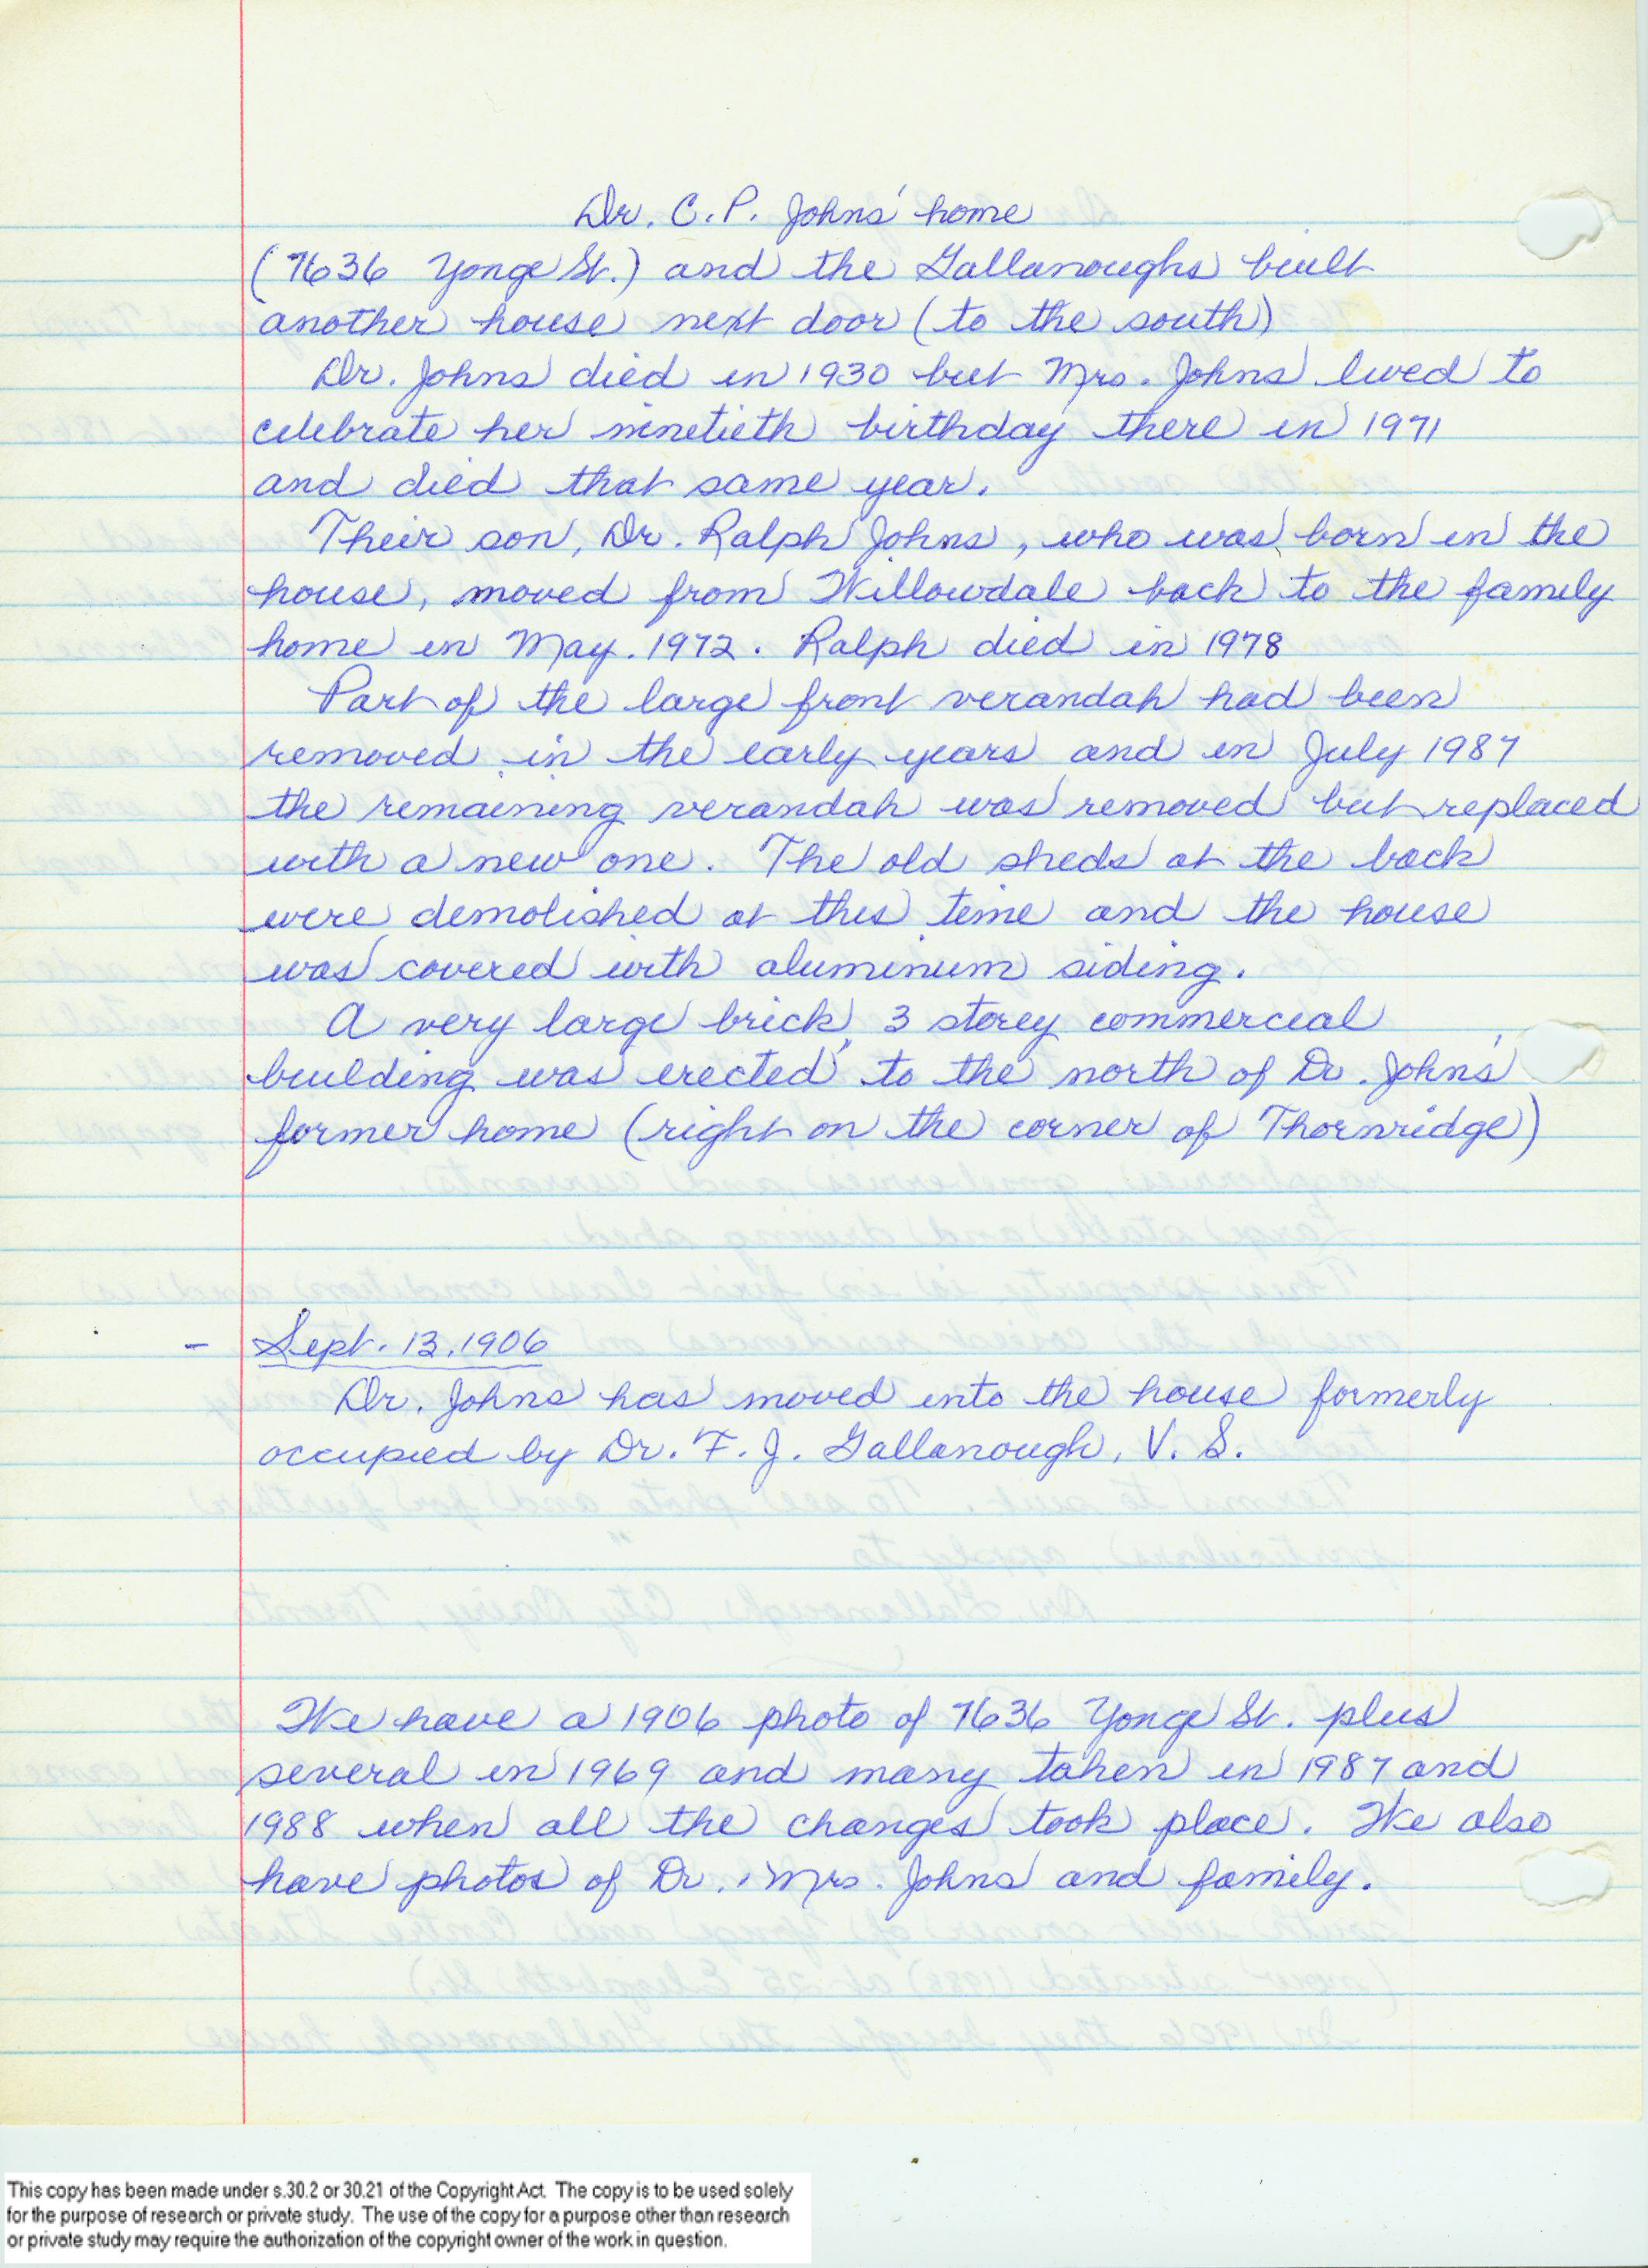 Dr. C. P. Johns' home
(7636 Yonge St.) and the Gallanoughs built
another house next door (to the south)
Dr. Johns died in 1930 but Mrs. Johns lived to
celebrate her ninetieth birthday there in 1971
and died that same year.
Their son, Dr. Ralph Johns, who was born in the
house, moved from Willowdale back to the family
home in May. 1972. Ralph died in 1978
Part of the large front verandah had been
removed in the early years and in July 1987
the remaining verandah was removed but replaced
with a new one. The old sheds at the back
were demolished at this time and the house
was covered with aluminum siding.
A very large brick, 3 storey commercial
building was erected to the north of Dr. Johns'
former home (right on the corner of Thornridge)
- Sept. 13, 1906
Dr. Johns has moved into the house formerly
occupied by Dr. F. J. Gallanough, V. S.
We have a 1906 photo of 7636 Yonge St. plus
several in 1969 and many taken in 1987 and
1988 when all the changes took place. We also
have photos of Dr. , Mrs. Johns and family.
This copy has been made under s.30.2 or 30.21 of the Copyright Act. The copy is to be used solely
for the purpose of research or private study. The use of the copy for a purpose other than research
or private study may require the authorization of the copyright owner of the work in question.